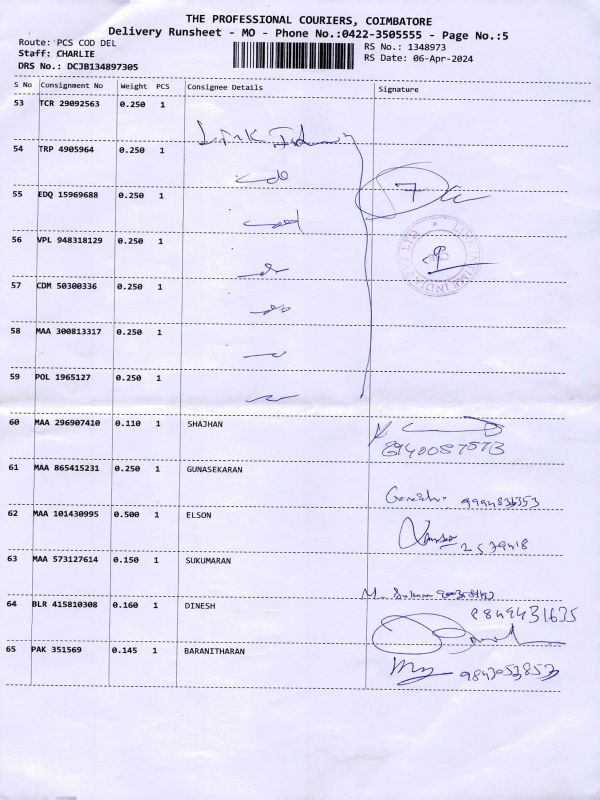 THE PROFESSIONAL COURIERS, COIMBATORE
Delivery Runsheet - MO - Phone No.:0422-3505555 - Page No.:5
Route: PCS COD DEL
RS No.: 1348973
Staff: CHARLIE
RS Date: 06-Apr-2024
DRS No.: DCJB134897305
S No Consignment No Weight PCS Consignee Details Signature
53 TCR 29092563 0.250 1
54 TRP 4905964 0.250 1
55 EDQ 15969688 0.250 1
7
56 VPL 948318129 0.250 1
57 CDM 50300336 0.250 1
58 MAA 300813317 0.250 1
59 POL 1965127 0.250 1
60 MAA 296907410 0.110 1 SHAJHAN
61 MAA 865415231 0.250 1 GUNASEKARAN
62 MAA 101430995 0.500 1 ELSON
63 MAA 573127614 0.150 1 SUKUMARAN
64 BLR 415810308 0.160 1 DINESH
65 PAK 351569 0.145 1 BARANITHARAN
9843053853